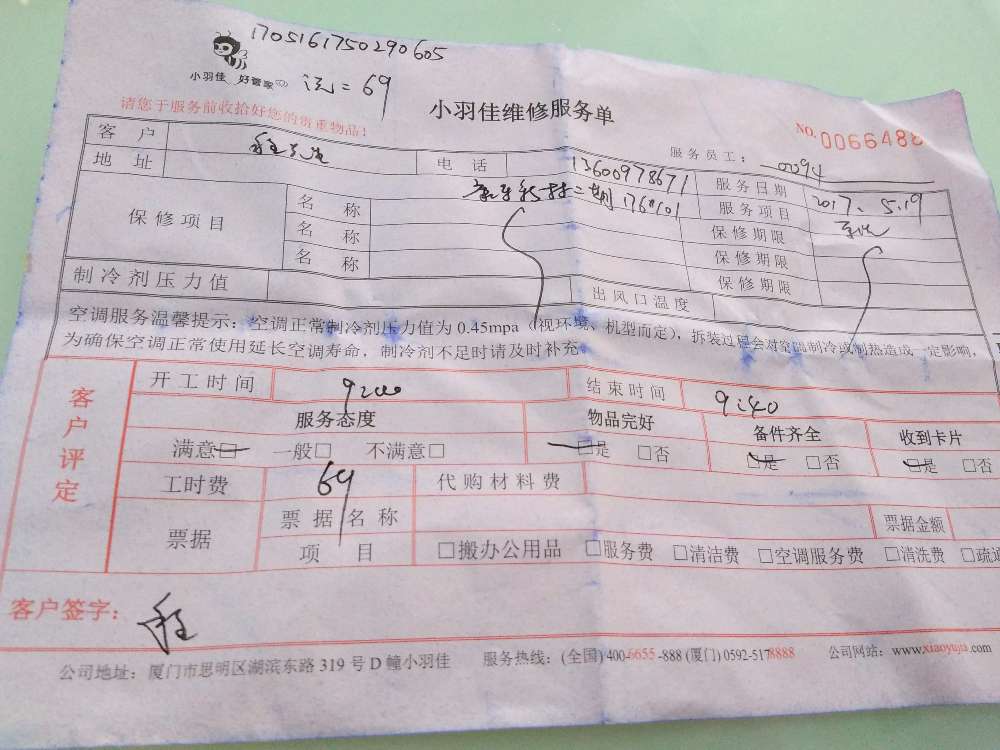 1705161750290605
小羽佳 好管家
请您于服务前收拾好您的贵重物品！
小羽佳维修服务单
NO. 0066488
服务员工： 0094
客 户 程先生 电 话 13600978671 服务日期 2017. 5.19
地 址 二期 服务项目
保修项目 名 称 保修期限
名 称 保修期限
名 称 保修期限
制冷剂压力值 出风口温度
空调服务温馨提示：空调正常制冷剂压力值为 0.45mpa（视环境、机型而定），拆装过程会对空调制冷或制热造成一定影响，
为确保空调正常使用延长空调寿命，制冷剂不足时请及时补充。
客户评定
开工时间 9:00 结束时间 9:40
服务态度 物品完好 备件齐全 收到卡片
满意□ 一般□ 不满意□ □是 □否 □是 □否 □是 □否
工时费 69 代购材料费
票据 票据名称 票据金额
项 目 □搬办公用品 □服务费 □清洁费 □空调服务费 □清洗费 □疏通
客户签字： 程
公司地址：厦门市思明区湖滨东路 319 号 D 幢小羽佳 服务热线：(全国) 400-6655-888 (厦门) 0592-5178888 公司网站：www.xiaoyujia.com